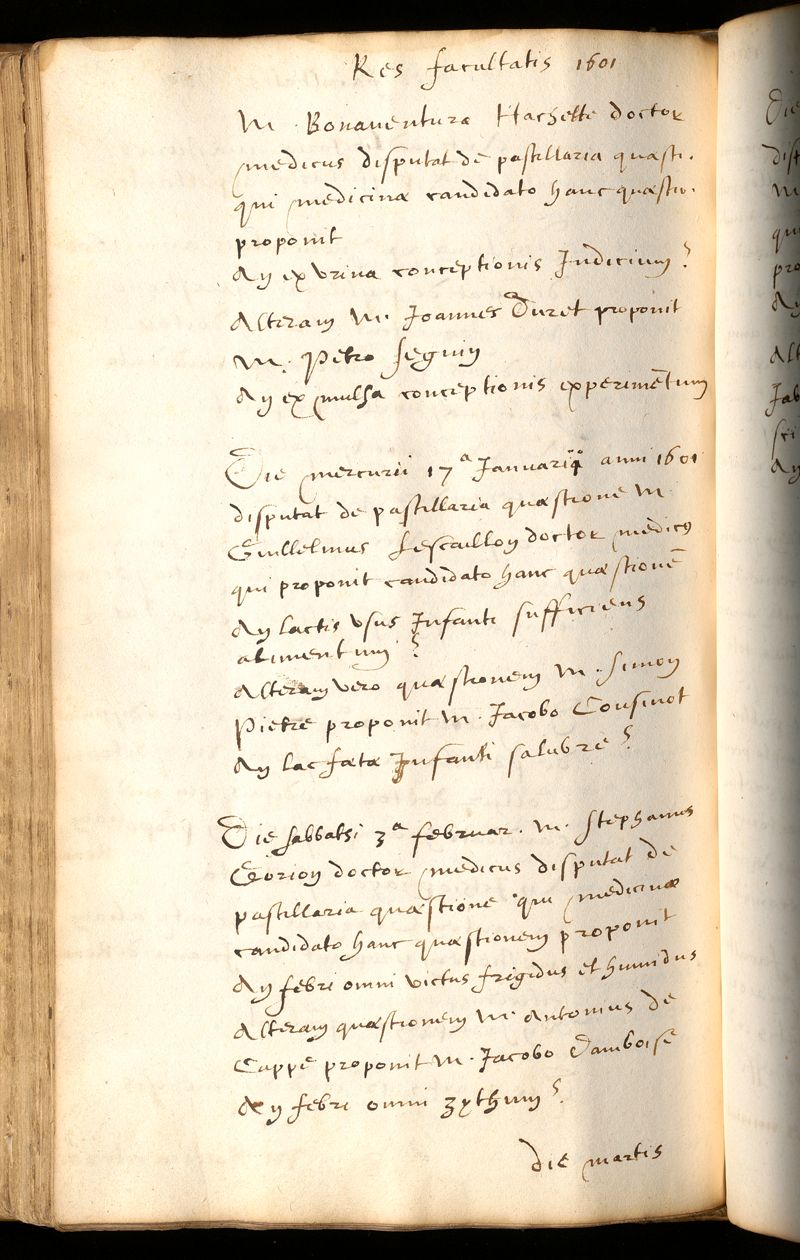 Res facultatis 1601
M. Bonaventura Hachette doctor
medicus disputat de pastillaria quæsti.
qui medicinæ candidato hanc quæstio.
proponit
An ex vrina conceptionis Judicium?
Alteram M. Joannes Duret proponit
M. Petro Seguin
An ex mulsa conceptionis experimētum
Die mercurii 17ª Januarii anni 1601
disputat de pastillaria quæstione M.
Guillelmus Lescaillon doctor medicus
qui proponit candidato hanc quæstionē
An lactis vsus Infanti sufficiens
alimentum?
Alteram vero quæstionem M. Simon
Pietre proponit M. Jacobo Cousinot
An lac fœtæ Infanti salubre?
Die sabbathi 3ª februar. M. Stephanus
Gorion doctor medicus disputat de
pastillaria quæstione qui medicinæ
candidato hanc quæstionem proponit
An febri omni victus frigidus et humidus
Alteram quæstionem M. Antonius de
Cappe proponit M. Jacobo Damboise
An febri omni zythum?
die martis
Die
disp
M
qu
pro
A
Alt
Jab
sti
An